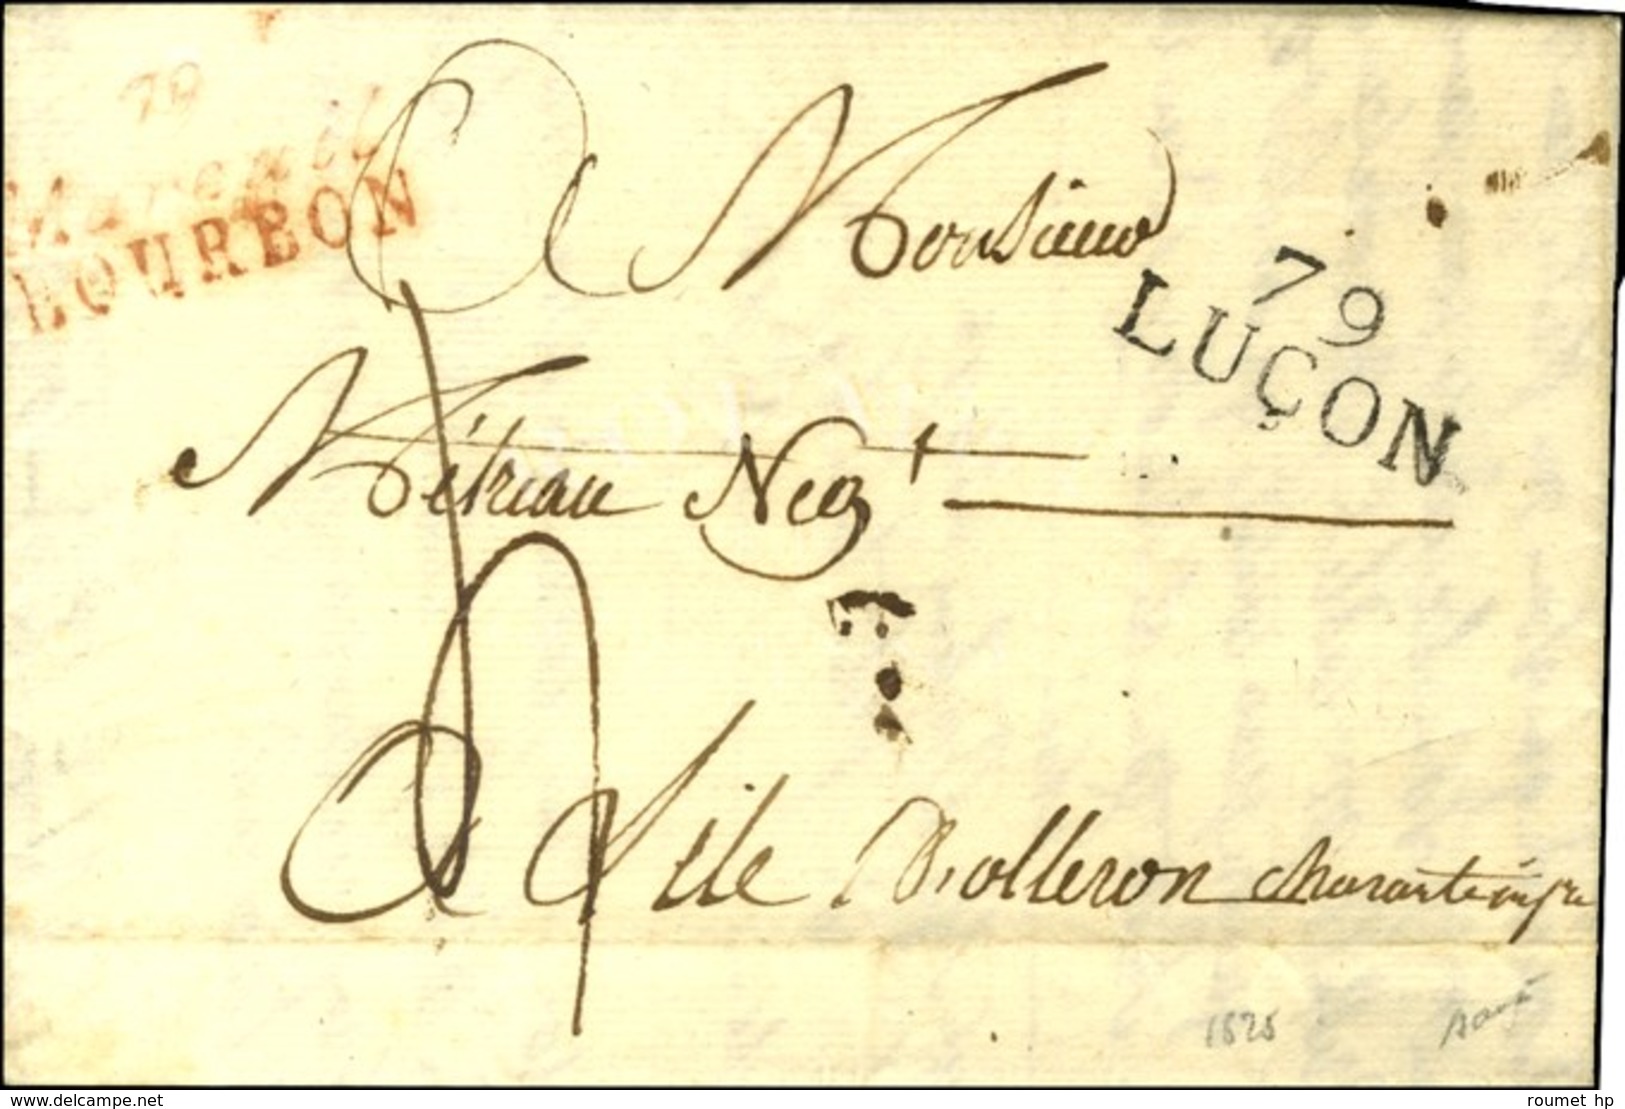 79
Mareuil
BOURBON
A Monsieur
79
LUÇON
Métreau Neg.t
A L'ile D'olleron charante infre
1825
roumet hp
www.delcampe.net